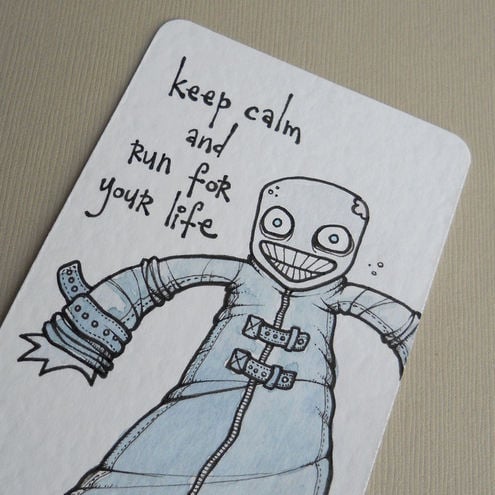 keep calm
and
Run foR
youR life